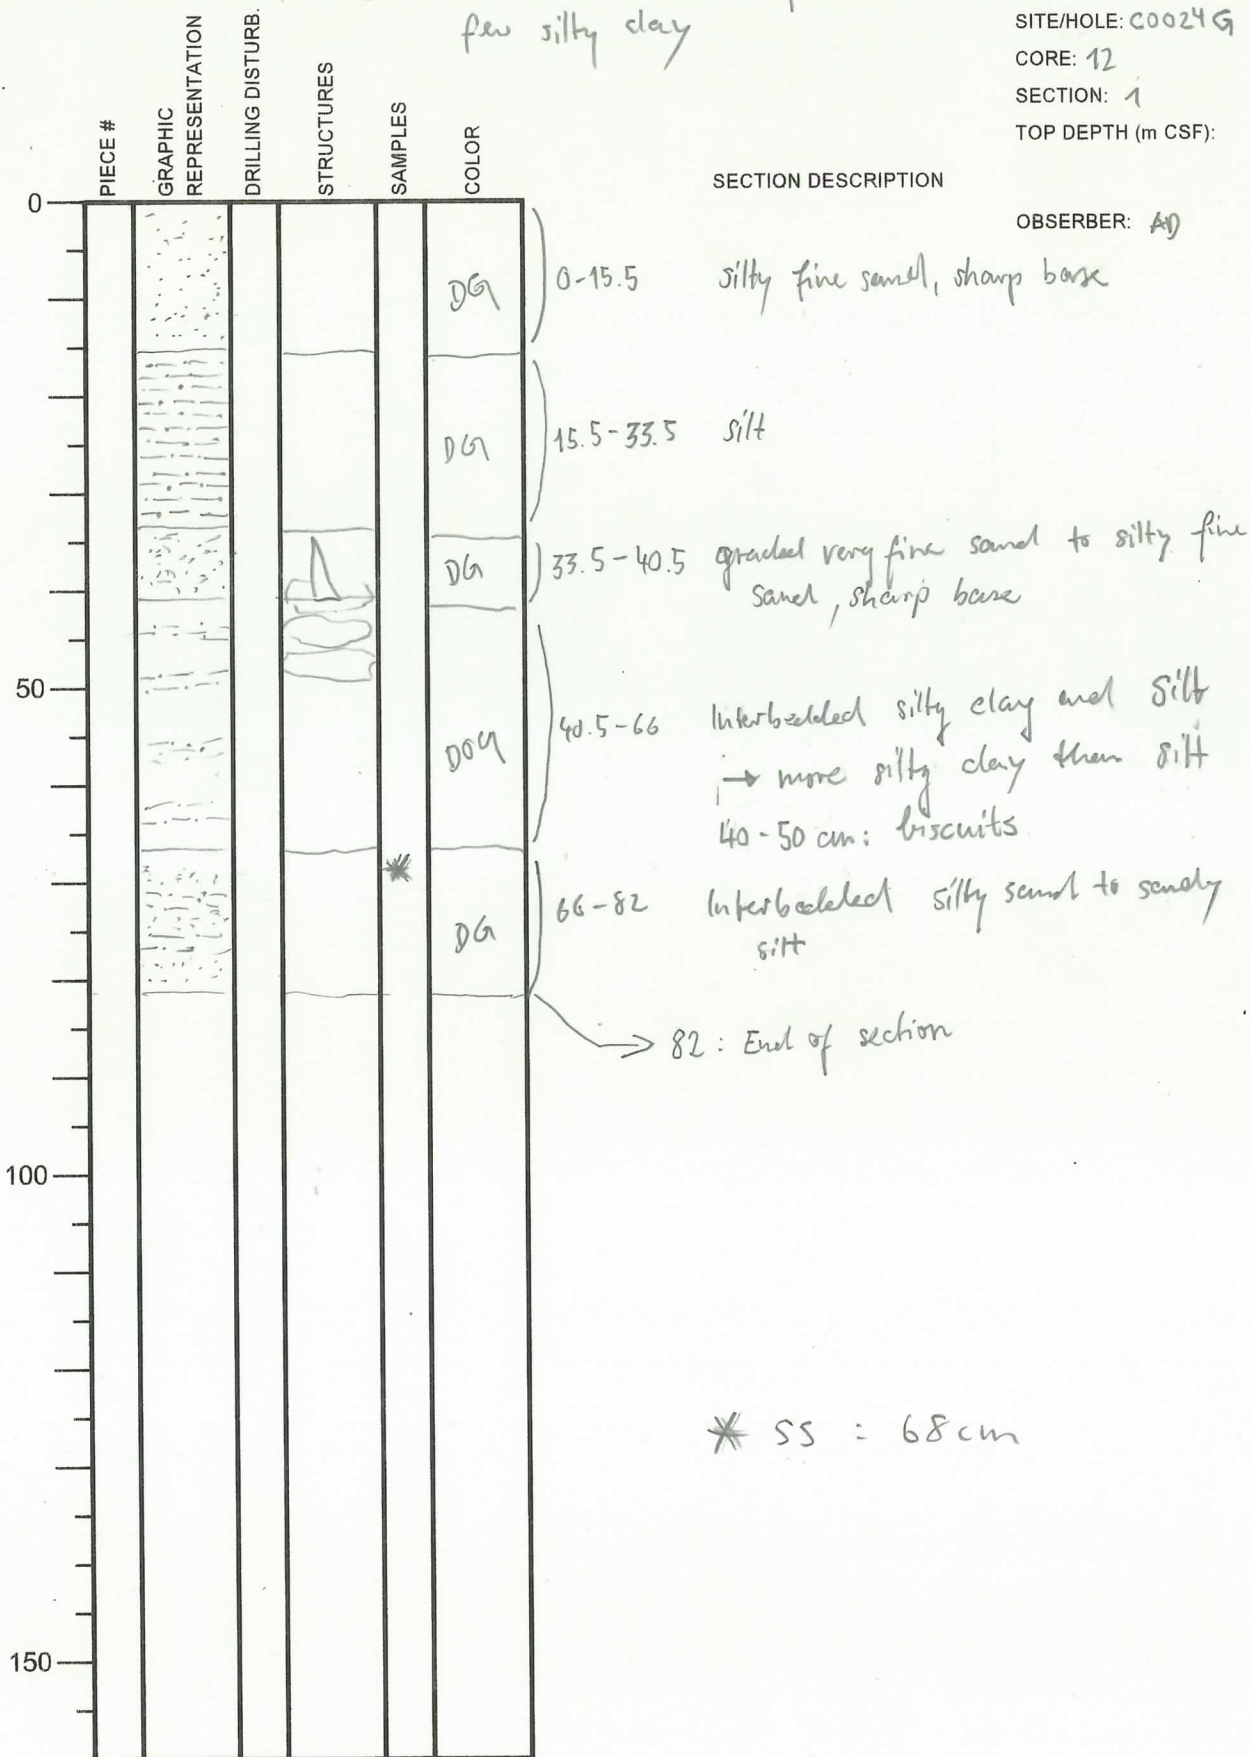 few silty clay
SITE/HOLE: C0024G
CORE: 12
SECTION: 1
TOP DEPTH (m CSF):
PIECE #
GRAPHIC
REPRESENTATION
DRILLING DISTURB.
STRUCTURES
SAMPLES
COLOR
SECTION DESCRIPTION
OBSERBER: AD
0
DG 0-15.5 silty fine sand, sharp base
DG 15.5-33.5 silt
DG 33.5-40.5 graded very fine sand to silty fine
sand, sharp base
50
DOG 40.5-66 Interbedded silty clay and silt
→ more silty clay than silt
40-50 cm: biscuits
*
DG 66-82 Interbedded silty sand to sandy
silt
→ 82: End of section
100
* SS : 68cm
150